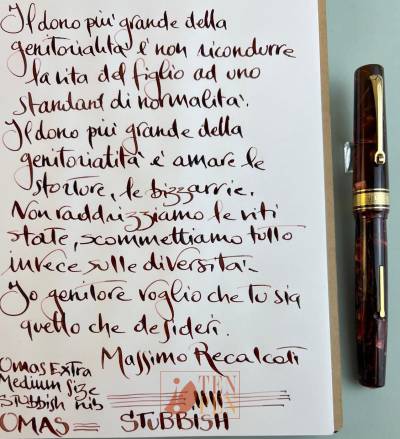 Il dono più grande della
genitorialità è non ricondurre
la vita del figlio ad uno
standard di normalità.
Il dono più grande della
genitorialità è amare le
storture, le bizzarrie.
Non raddrizziamo le viti
storte, scommettiamo tutto
invece sulle diversità.
Io genitore voglio che tu sia
quello che desideri.
Massimo Recalcati
Omas Extra
Medium size
Stubbish nib
OMAS STUBBISH
TEN